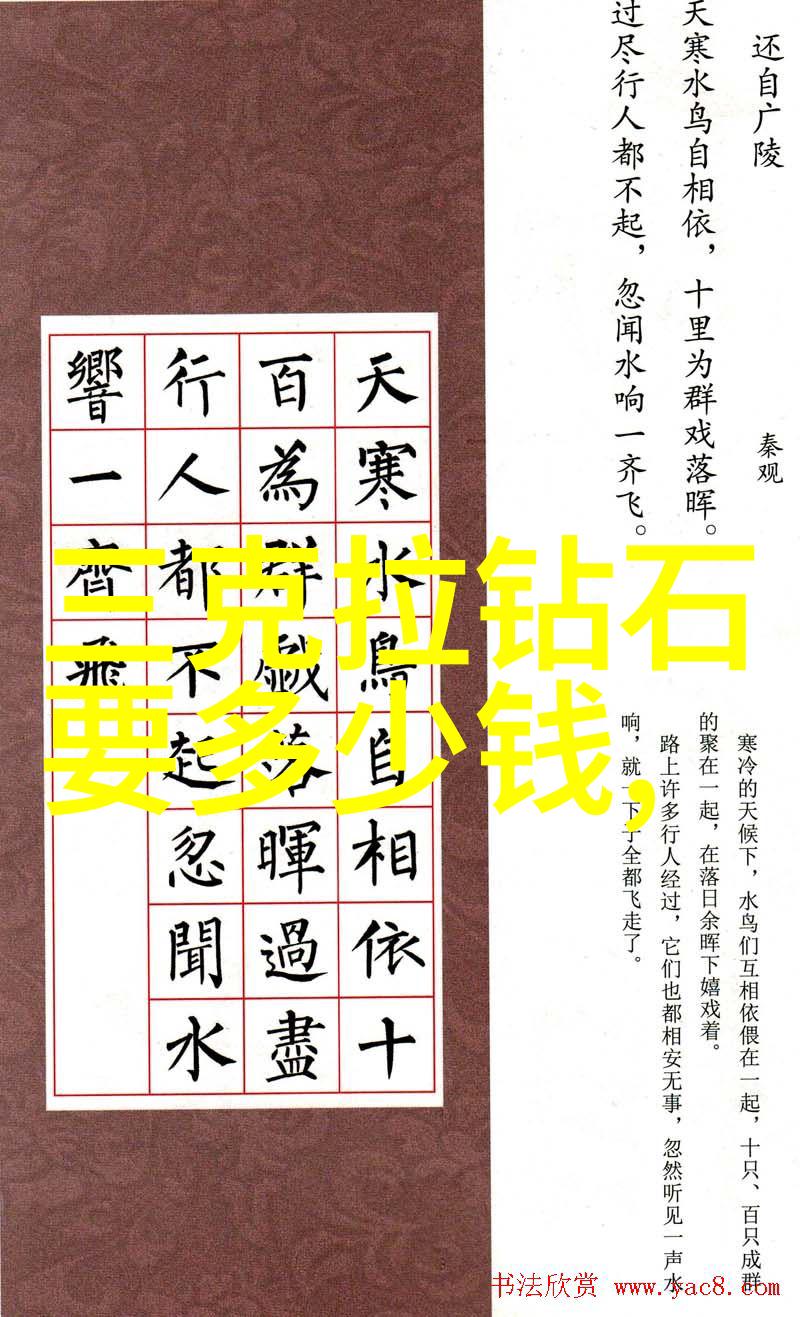 还自广陵
秦观
天寒水鸟自相依，十里为群戏落晖。
过尽行人都不起，忽闻水响一齐飞。
寒冷的天候下，水鸟们互相依偎在一起，十只、百只成群
的聚在一起，在落日余晖下嬉戏着。
路上许多行人经过，它们也都相安无事，忽然听见一声水
响，就一下子全都飞走了。
天寒水鳥自相依十
百為群戲落暉過盡
行人都不起忽聞水
響一齊飛
三克拉钻石
要多少钱,
书法欣赏 www.yac8.com